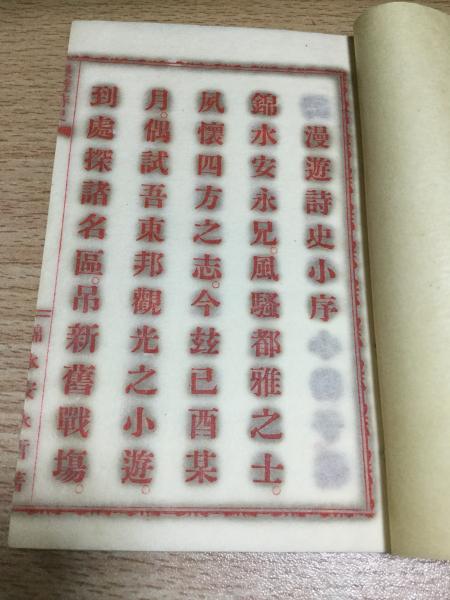 漫遊詩史小序
錦水安永兄。風騷都雅之士。
夙懷四方之志。今玆己酉某
月。偶試吾東邦觀光之小遊。
到處探諸名區。吊新舊戰塲。
錦水安永行著